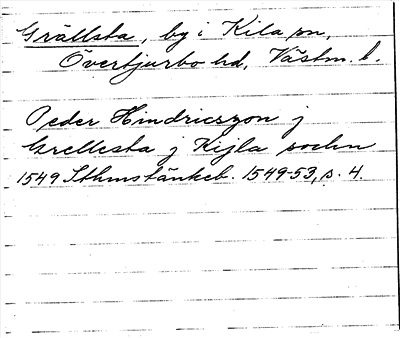 Grällsta, by i Kila sn,
Övertjurbo hd, Västm. l.
Peder Hindricszon j
Grellesta j Kijla sochn
1549 Sthmstänkeb. 1549-53, s. 4.